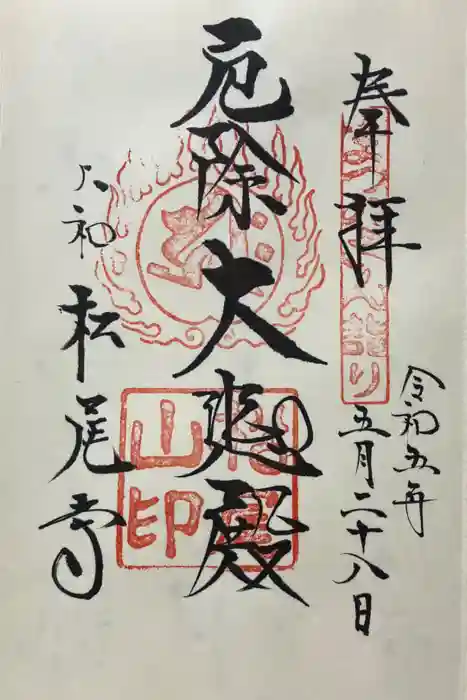 奉拝
令和五年
五月二十八日
厄除大悲殿
大和
松尾寺
松尾
山印